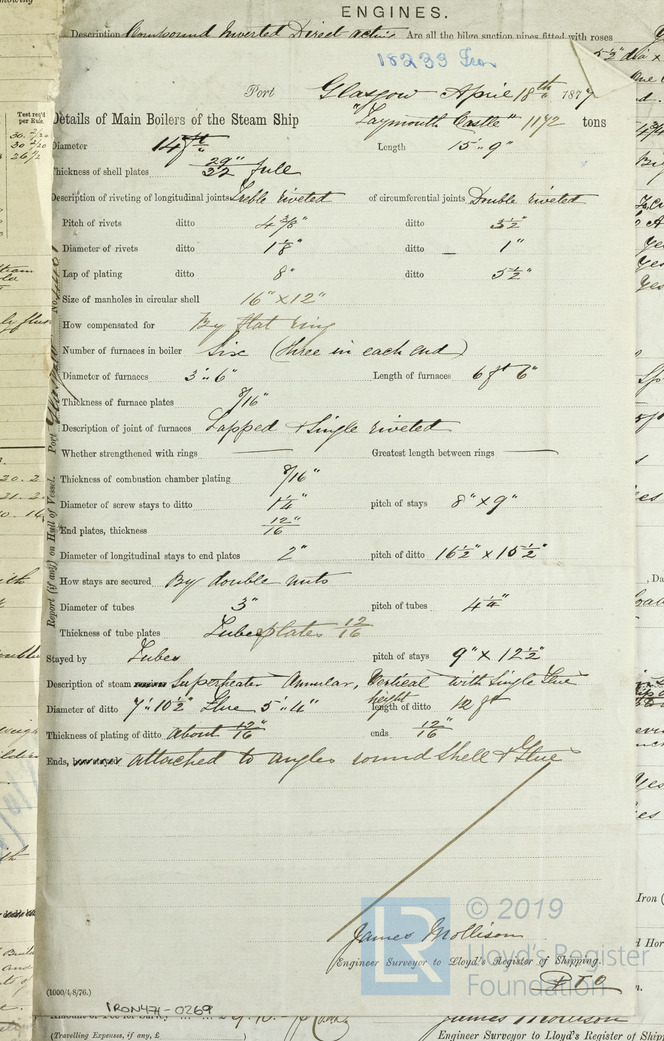 ENGINES.
Description Compound Inverted Direct acting Are all the bilge suction pipes fitted with roses
18233 Iron
Port Glasgow April 18th 1877
Details of Main Boilers of the Steam Ship "Taymouth Castle" 1172 tons
Diameter 14 ft Length 15'.. 9"
Thickness of shell plates 29"/32 full
Description of riveting of longitudinal joints Treble riveted of circumferential joints Double riveted
Pitch of rivets ditto 4 3/8" ditto 3 1/2"
Diameter of rivets ditto 1 1/8" ditto 1"
Lap of plating ditto 8" ditto 5 1/2"
Size of manholes in circular shell 16" x 12"
How compensated for By flat ring
Number of furnaces in boiler Six (three in each end)
Diameter of furnaces 3'.. 6" Length of furnaces 6 ft 6"
Thickness of furnace plates 8/16"
Description of joint of furnaces Lapped & Single riveted
Whether strengthened with rings Greatest length between rings
Thickness of combustion chamber plating 8/16"
Diameter of screw stays to ditto 1 1/4" pitch of stays 8" x 9"
End plates, thickness 12"/16
Diameter of longitudinal stays to end plates 2" pitch of ditto 16 1/2" x 15 1/2"
How stays are secured By double nuts
Diameter of tubes 3" pitch of tubes 4 1/4"
Thickness of tube plates Tubeplates 12/16
Stayed by Tubes pitch of stays 9" x 12 1/2"
Description of steam Superheater Annular, Vertical with Single Flue
Diameter of ditto 7'.. 10 1/2" Flue 5'.. 4" height length of ditto 12 ft
Thickness of plating of ditto about 12"/16 ends 12"/16
Ends, how stayed attached to angles round Shell & Flue
James Mollison
Engineer Surveyor to Lloyd's Register of Shipping.
PTO
© 2019
LR Lloyd's Register
Foundation
(1000/4/8/76.)
IRON474-0269
(Travelling Expenses, if any, £
James Mollison
Engineer Surveyor to Lloyd's Register of Shipp
Report (if any) on Hull of Vessel. Port
Test req'd
per Rule.